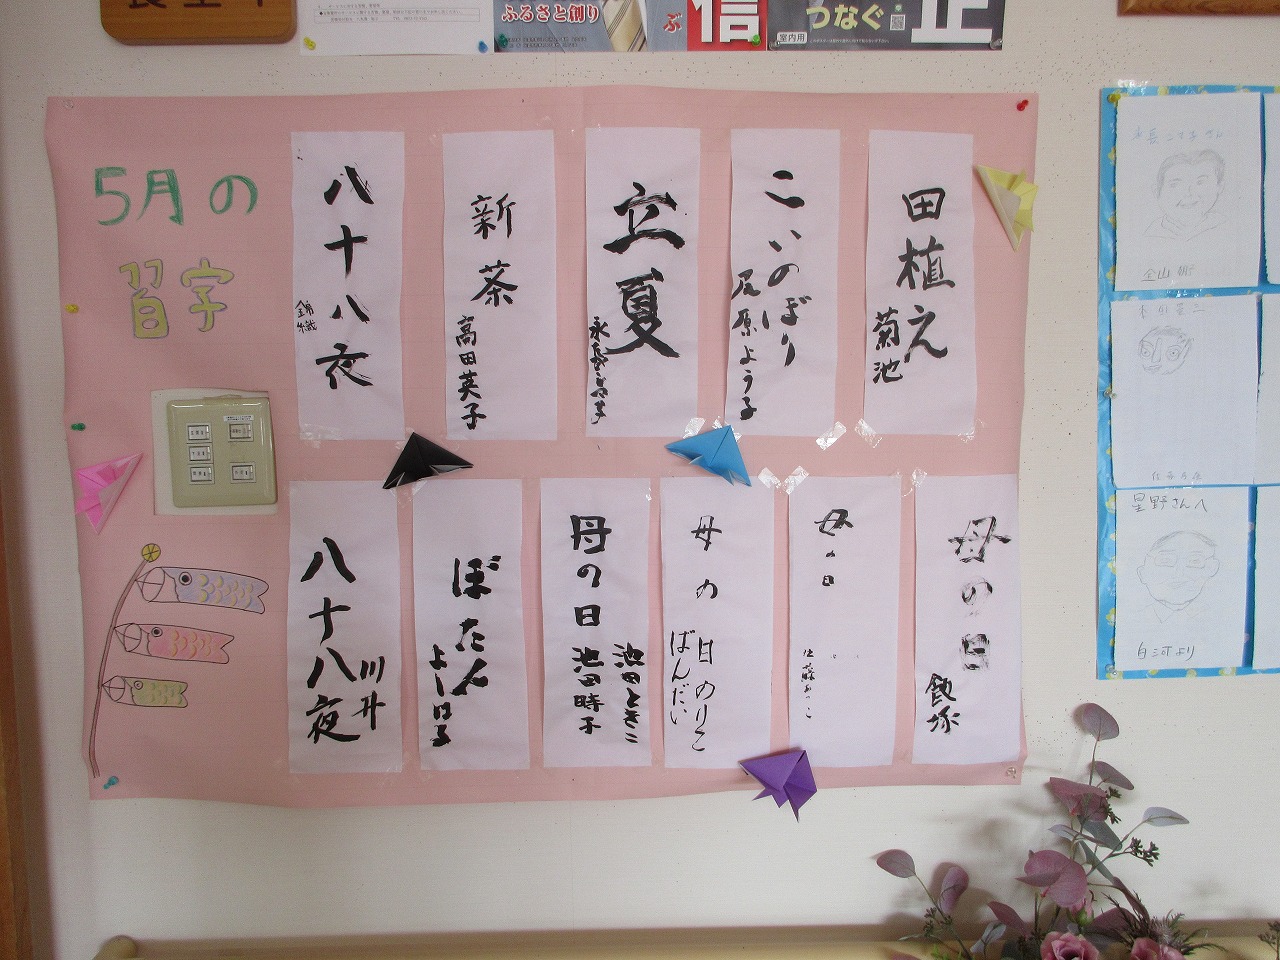 ふるさと創り
ぶ
信
つなぐ
室内用
正
5月の
習字
田植え
菊池
こいのぼり
尾原ようる
立夏
新茶
高田英子
八十八夜
錦織
母の日
飯塚
母の日
母の日
のりこ
ばんだい
母の日
池田ときこ
池田時子
ぼたん
よしはる
八十八夜
川井
星野さんへ
白河より